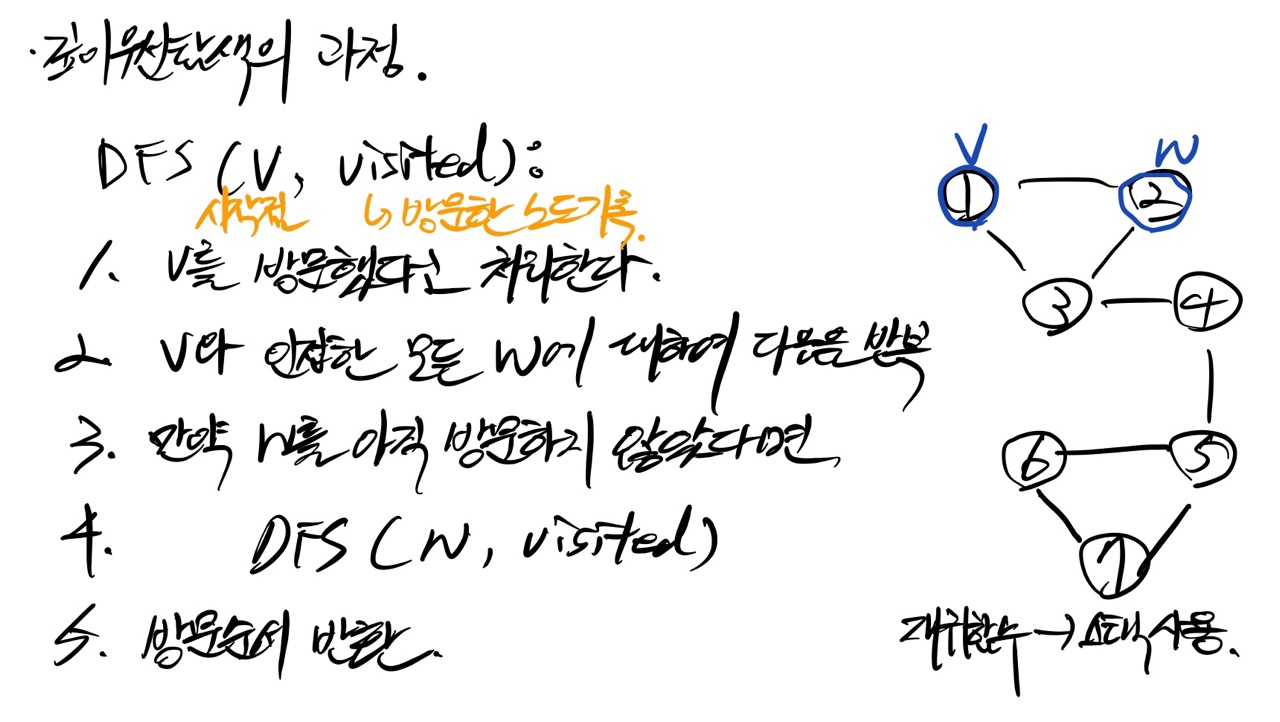 · 깊이우선탐색의 과정.
DFS (V, visited):
시작점 ↳ 방문한 노드기록.
1. V를 방문했다고 처리한다.
2. V와 인접한 모든 W에 대하여 다음을 반복
3. 만약 W를 아직 방문하지 않았다면
4. DFS (W, visited)
5. 방문순서 반환.
V W
1 2
3 4
6 5
7
재귀함수 → 스택 사용.